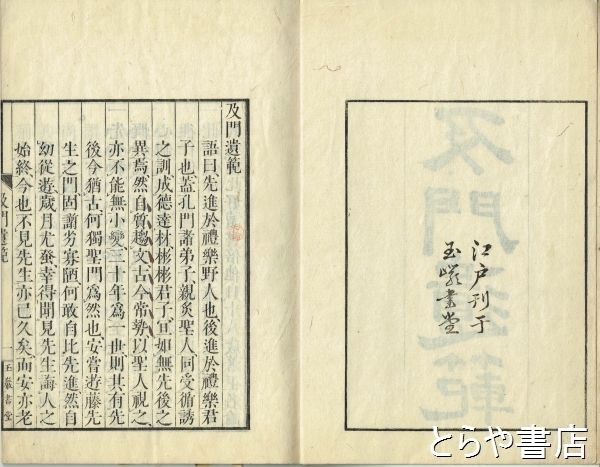 江戸刊于
玉巖書堂
及門遺範
語曰先進於禮樂野人也後進於禮樂君
子也蓋孔門諸弟子親炙聖人同受循誘
之訓成德達材彬彬君子宜如無先後之
異焉然自質趨文古今常勢以聖人視之
亦不能無小變三十年爲一世則其有先
後今猶古何獨聖門爲然也安嘗遊藤先
生之門固謭劣寡陋何敢自比先進然自
幼從遊歲月尤久幸得聞見先生誨人之
始終今也不見先生亦已久矣而安亦老
及門遺範
玉巖書堂
及門遺範
とらや書店